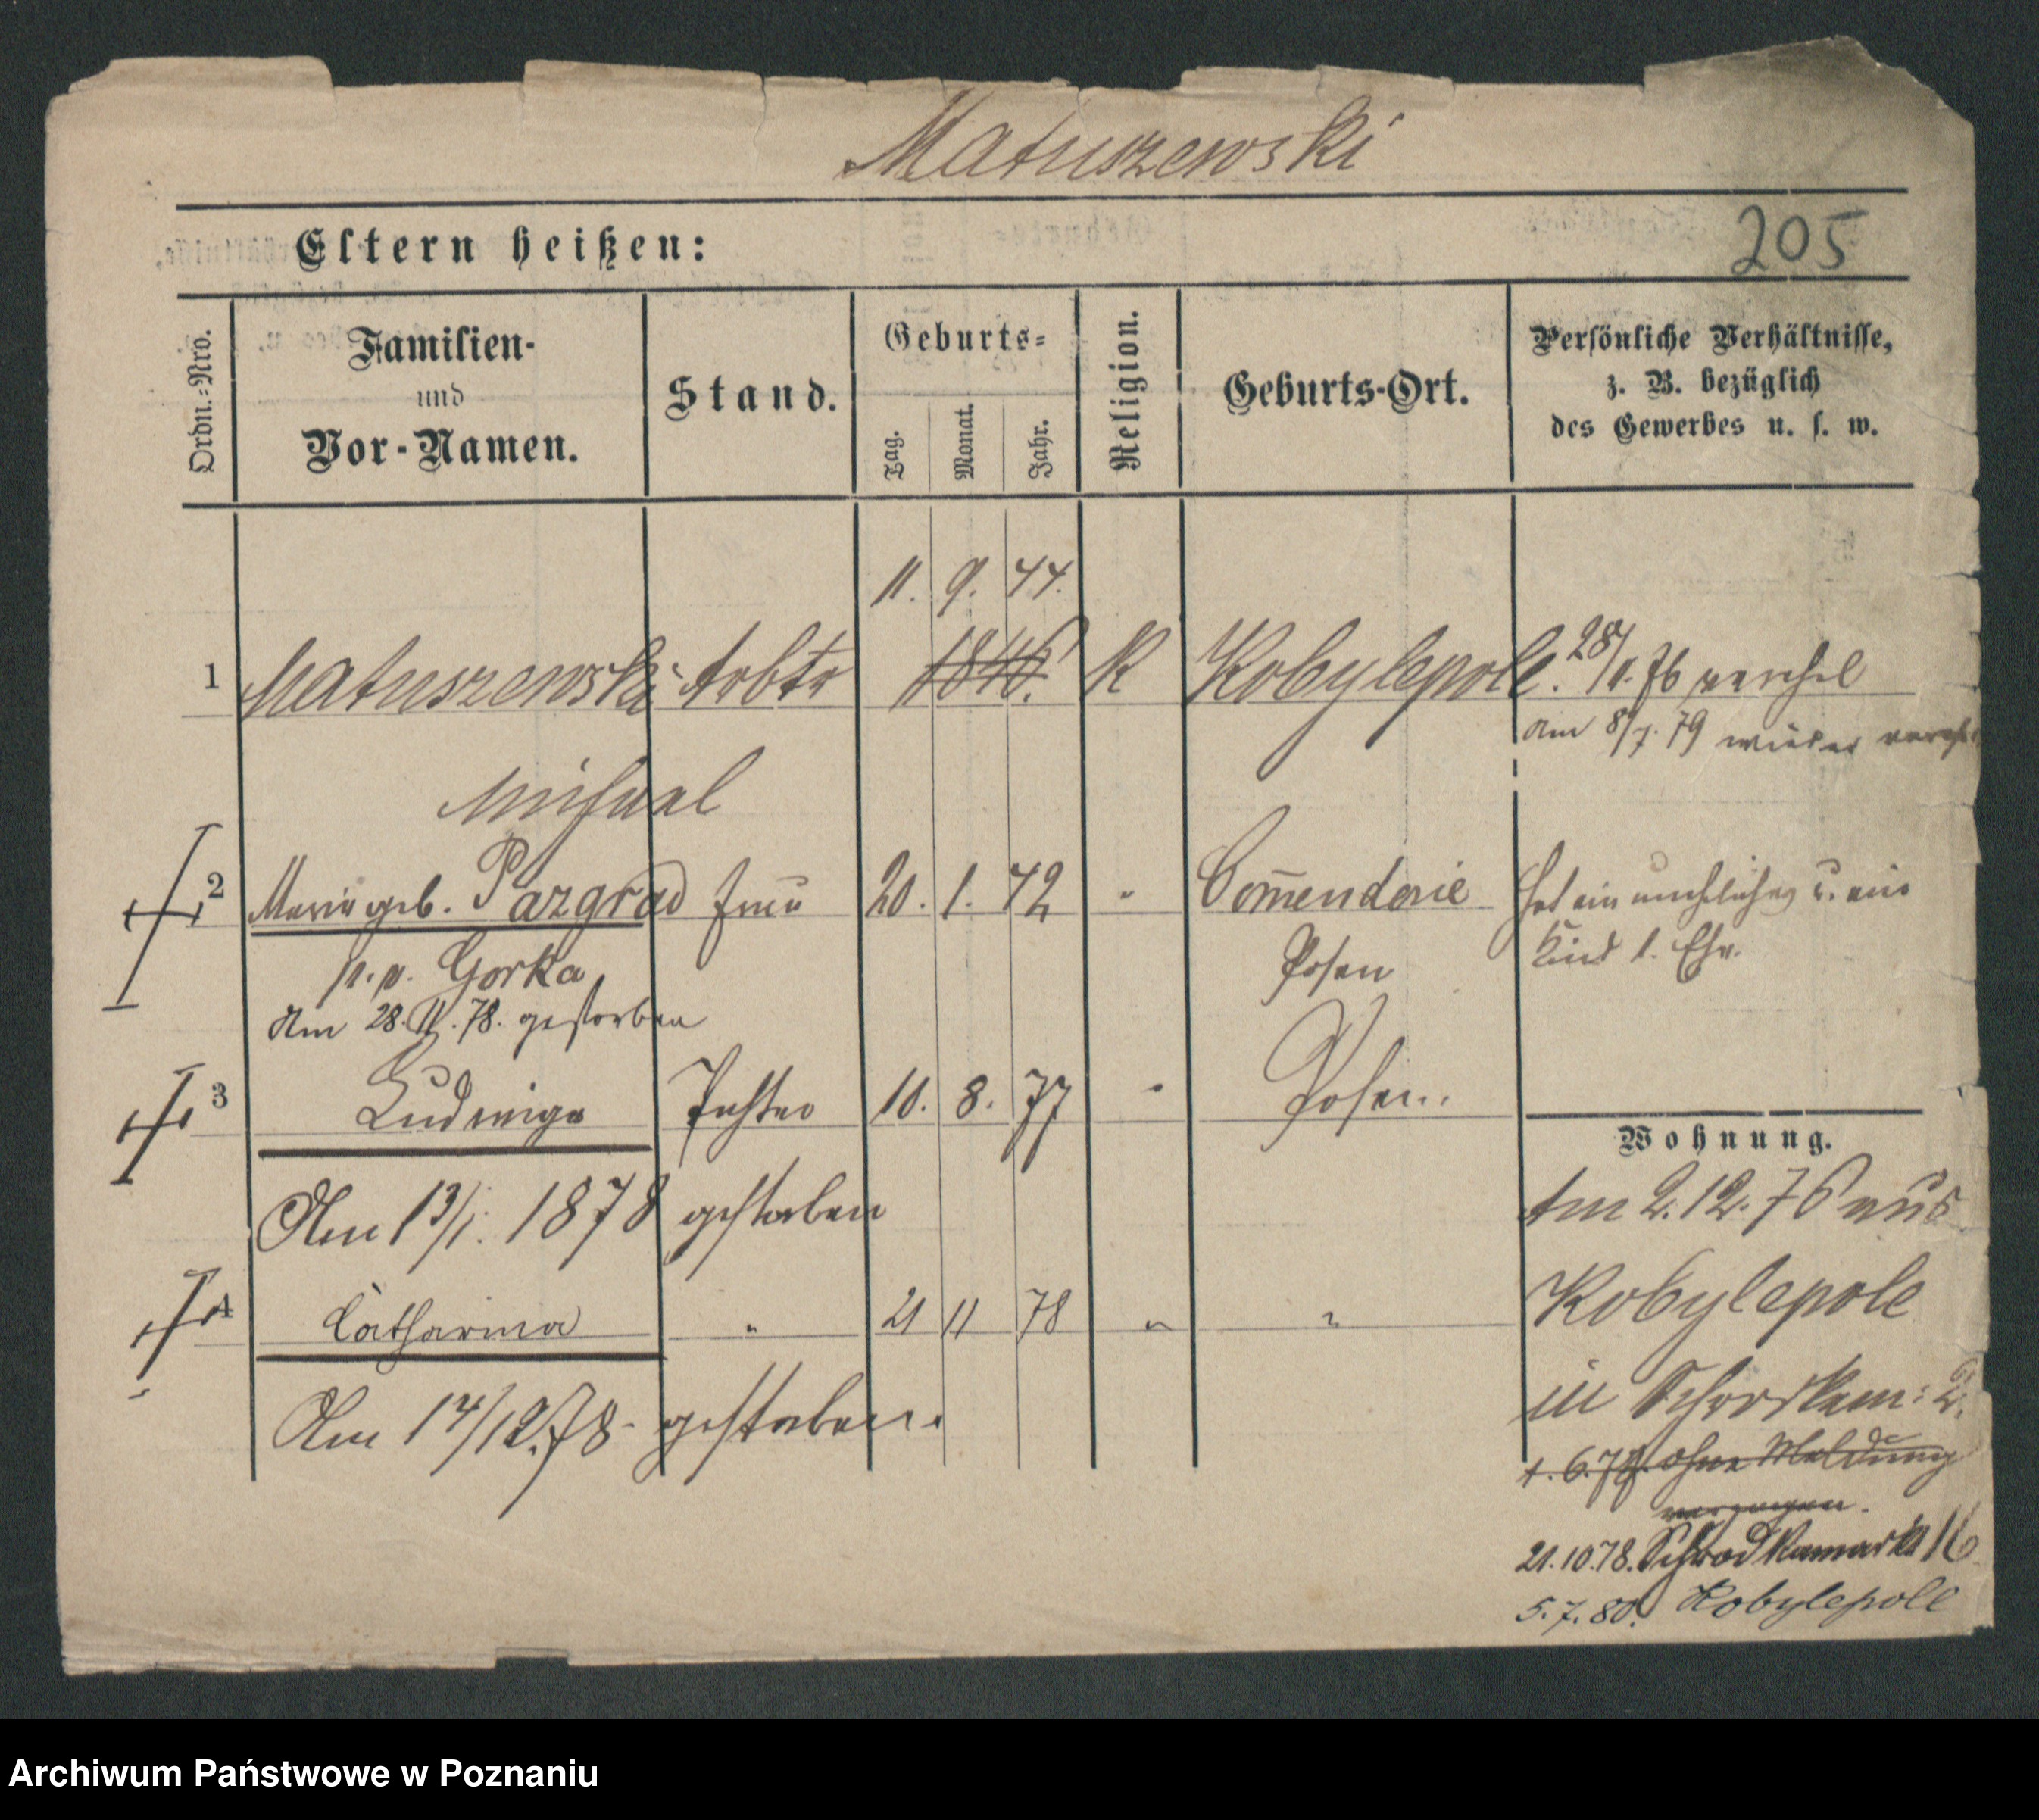 Matuszewski
205
Eltern heißen:
Ordn.=Nro.
Familien-
und
Vor-Namen.
Stand.
Geburts=
Tag.
Monat.
Jahr.
Religion.
Geburts-Ort.
Persönliche Verhältnisse,
z. B. bezüglich
des Gewerbes u. s. w.
11. 9. 44.
1 Matuszewski Arbtr 1846. K Kobylepole. 28/11.76 verehel
Am 8/7.79 wieder
Michael
2 Marie geb. Pazgrad Frau 20. 1. 42 " Com̄enderie Hat ein unehliches u. ein
Posen Kind 1. Ehe.
p. v. Gorka
Am 28.11.78. gestorben
3 Ludwiga Tochter 10. 8. 77 " Posen.
Wohnung.
Am 13/1. 1878 gestorben
Am 2.12.76 aus
Kobylepole
4 Catharina " 21 11 78 " "
in
Am 14/12.78 gestorben.
ohne Meldung
verzogen.
21.10.78. Schrod 16
5.7.80. Kobylepole
Archiwum Państwowe w Poznaniu